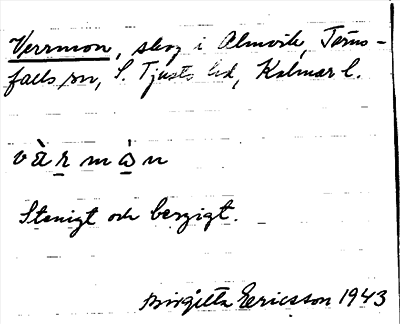 Verrmon, skog i Almvik, Törns-
falls sn, S. Tjusts hd, Kalmar l.
vä̀r̲må̀n
Stenigt och bergigt.
Birgitta Ericsson 1943